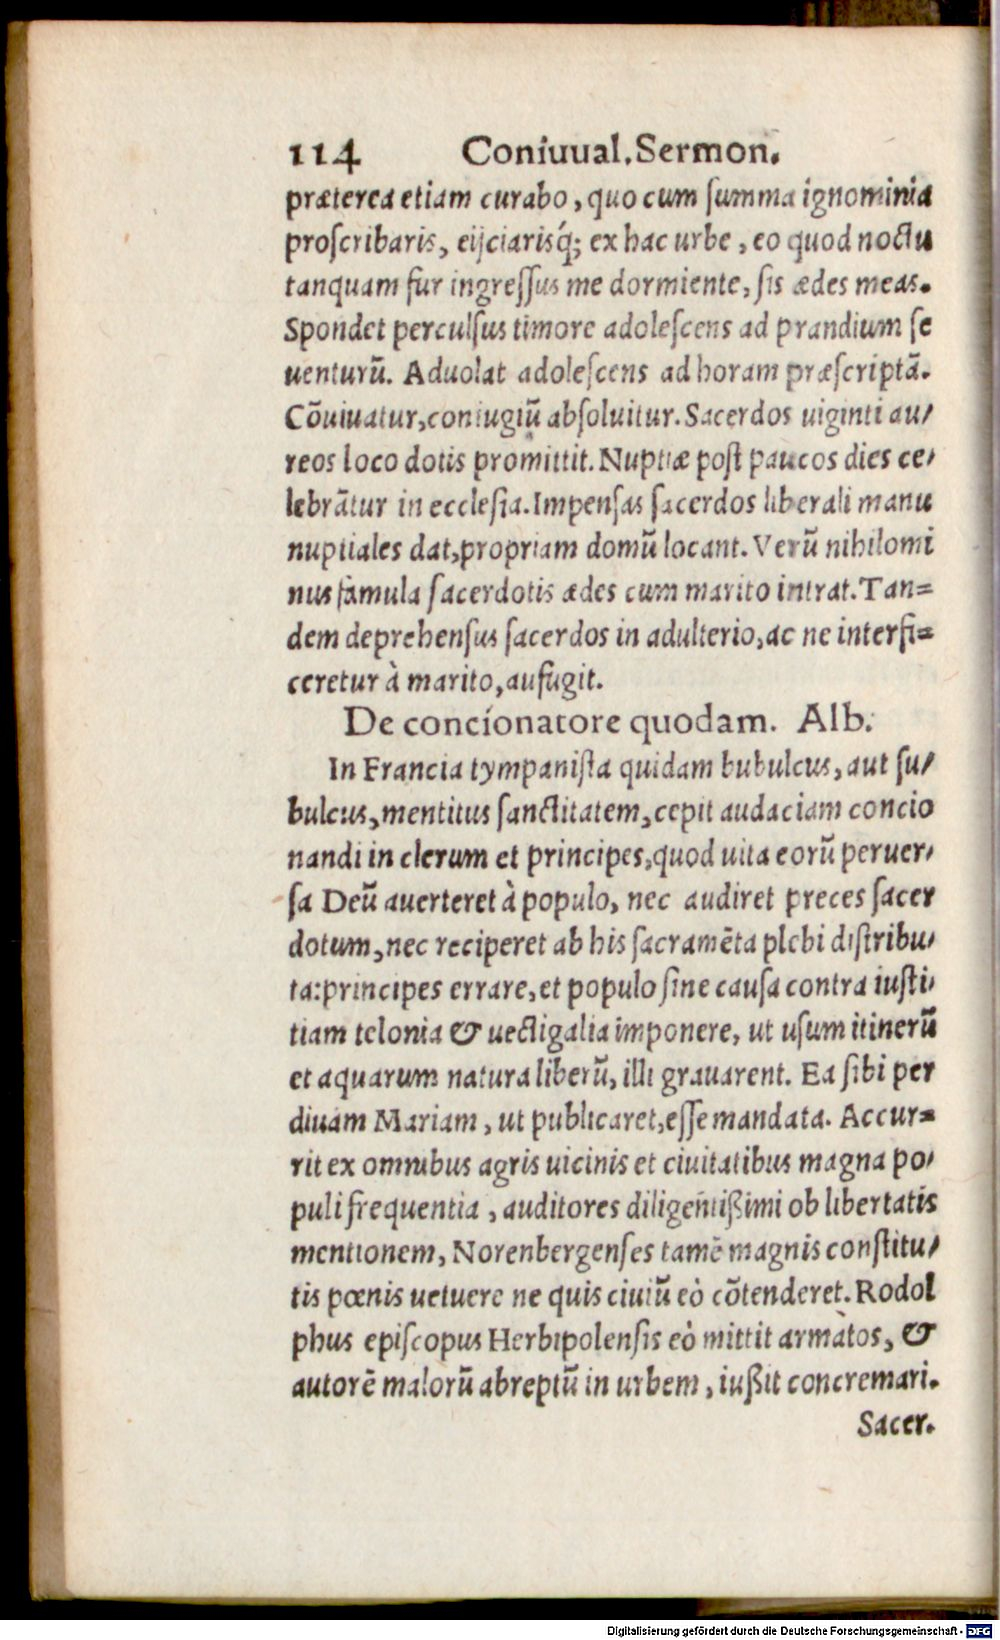 114 Coniuual.Sermon.
præterea etiam curabo, quo cum ſumma ignominia
proſcribaris, eijciarisq́; ex hac urbe, eo quod noctu
tanquam fur ingreſſus me dormiente, ſis ædes meas.
Spondet perculſus timore adoleſcens ad prandium ſe
uenturū. Aduolat adoleſcens ad horam præſcriptā.
Cōuiuatur, coniugiū abſoluitur. Sacerdos uiginti au/
reos loco dotis promittit. Nuptiæ poſt paucos dies ce/
lebrātur in eccleſia. Impenſas ſacerdos liberali manu
nuptiales dat, propriam domū locant. Verū nihilomi
nus famula ſacerdotis ædes cum marito intrat. Tan=
dem deprehenſus ſacerdos in adulterio, ac ne interfi=
ceretur à marito, aufugit.
De concionatore quodam. Alb.
In Francia tympaniſta quidam bubulcus, aut ſu/
bulcus, mentitus ſanctitatem, cepit audaciam concio
nandi in clerum et principes, quod uita eorū peruer/
ſa Deū auerteret à populo, nec audiret preces ſacer
dotum, nec reciperet ab his ſacramēta plebi diſtribu/
ta: principes errare, et populo ſine cauſa contra iuſti/
tiam telonia & uectigalia imponere, ut uſum itinerū
et aquarum natura liberū, illi grauarent. Ea ſibi per
diuam Mariam, ut publicaret, eſſe mandata. Accur=
rit ex omnibus agris uicinis et ciuitatibus magna po/
puli frequentia, auditores diligentißimi ob libertatis
mentionem, Norenbergenſes tamē magnis conſtitu/
tis pœnis uetuere ne quis ciuiū eò cōtenderet. Rodol
phus epiſcopus Herbipolenſis eò mittit armàtos, &
autorē malorū abreptū in urbem, iußit concremari.
Sacer.
Digitalisierung gefördert durch die Deutsche Forschungsgemeinschaft - DFG